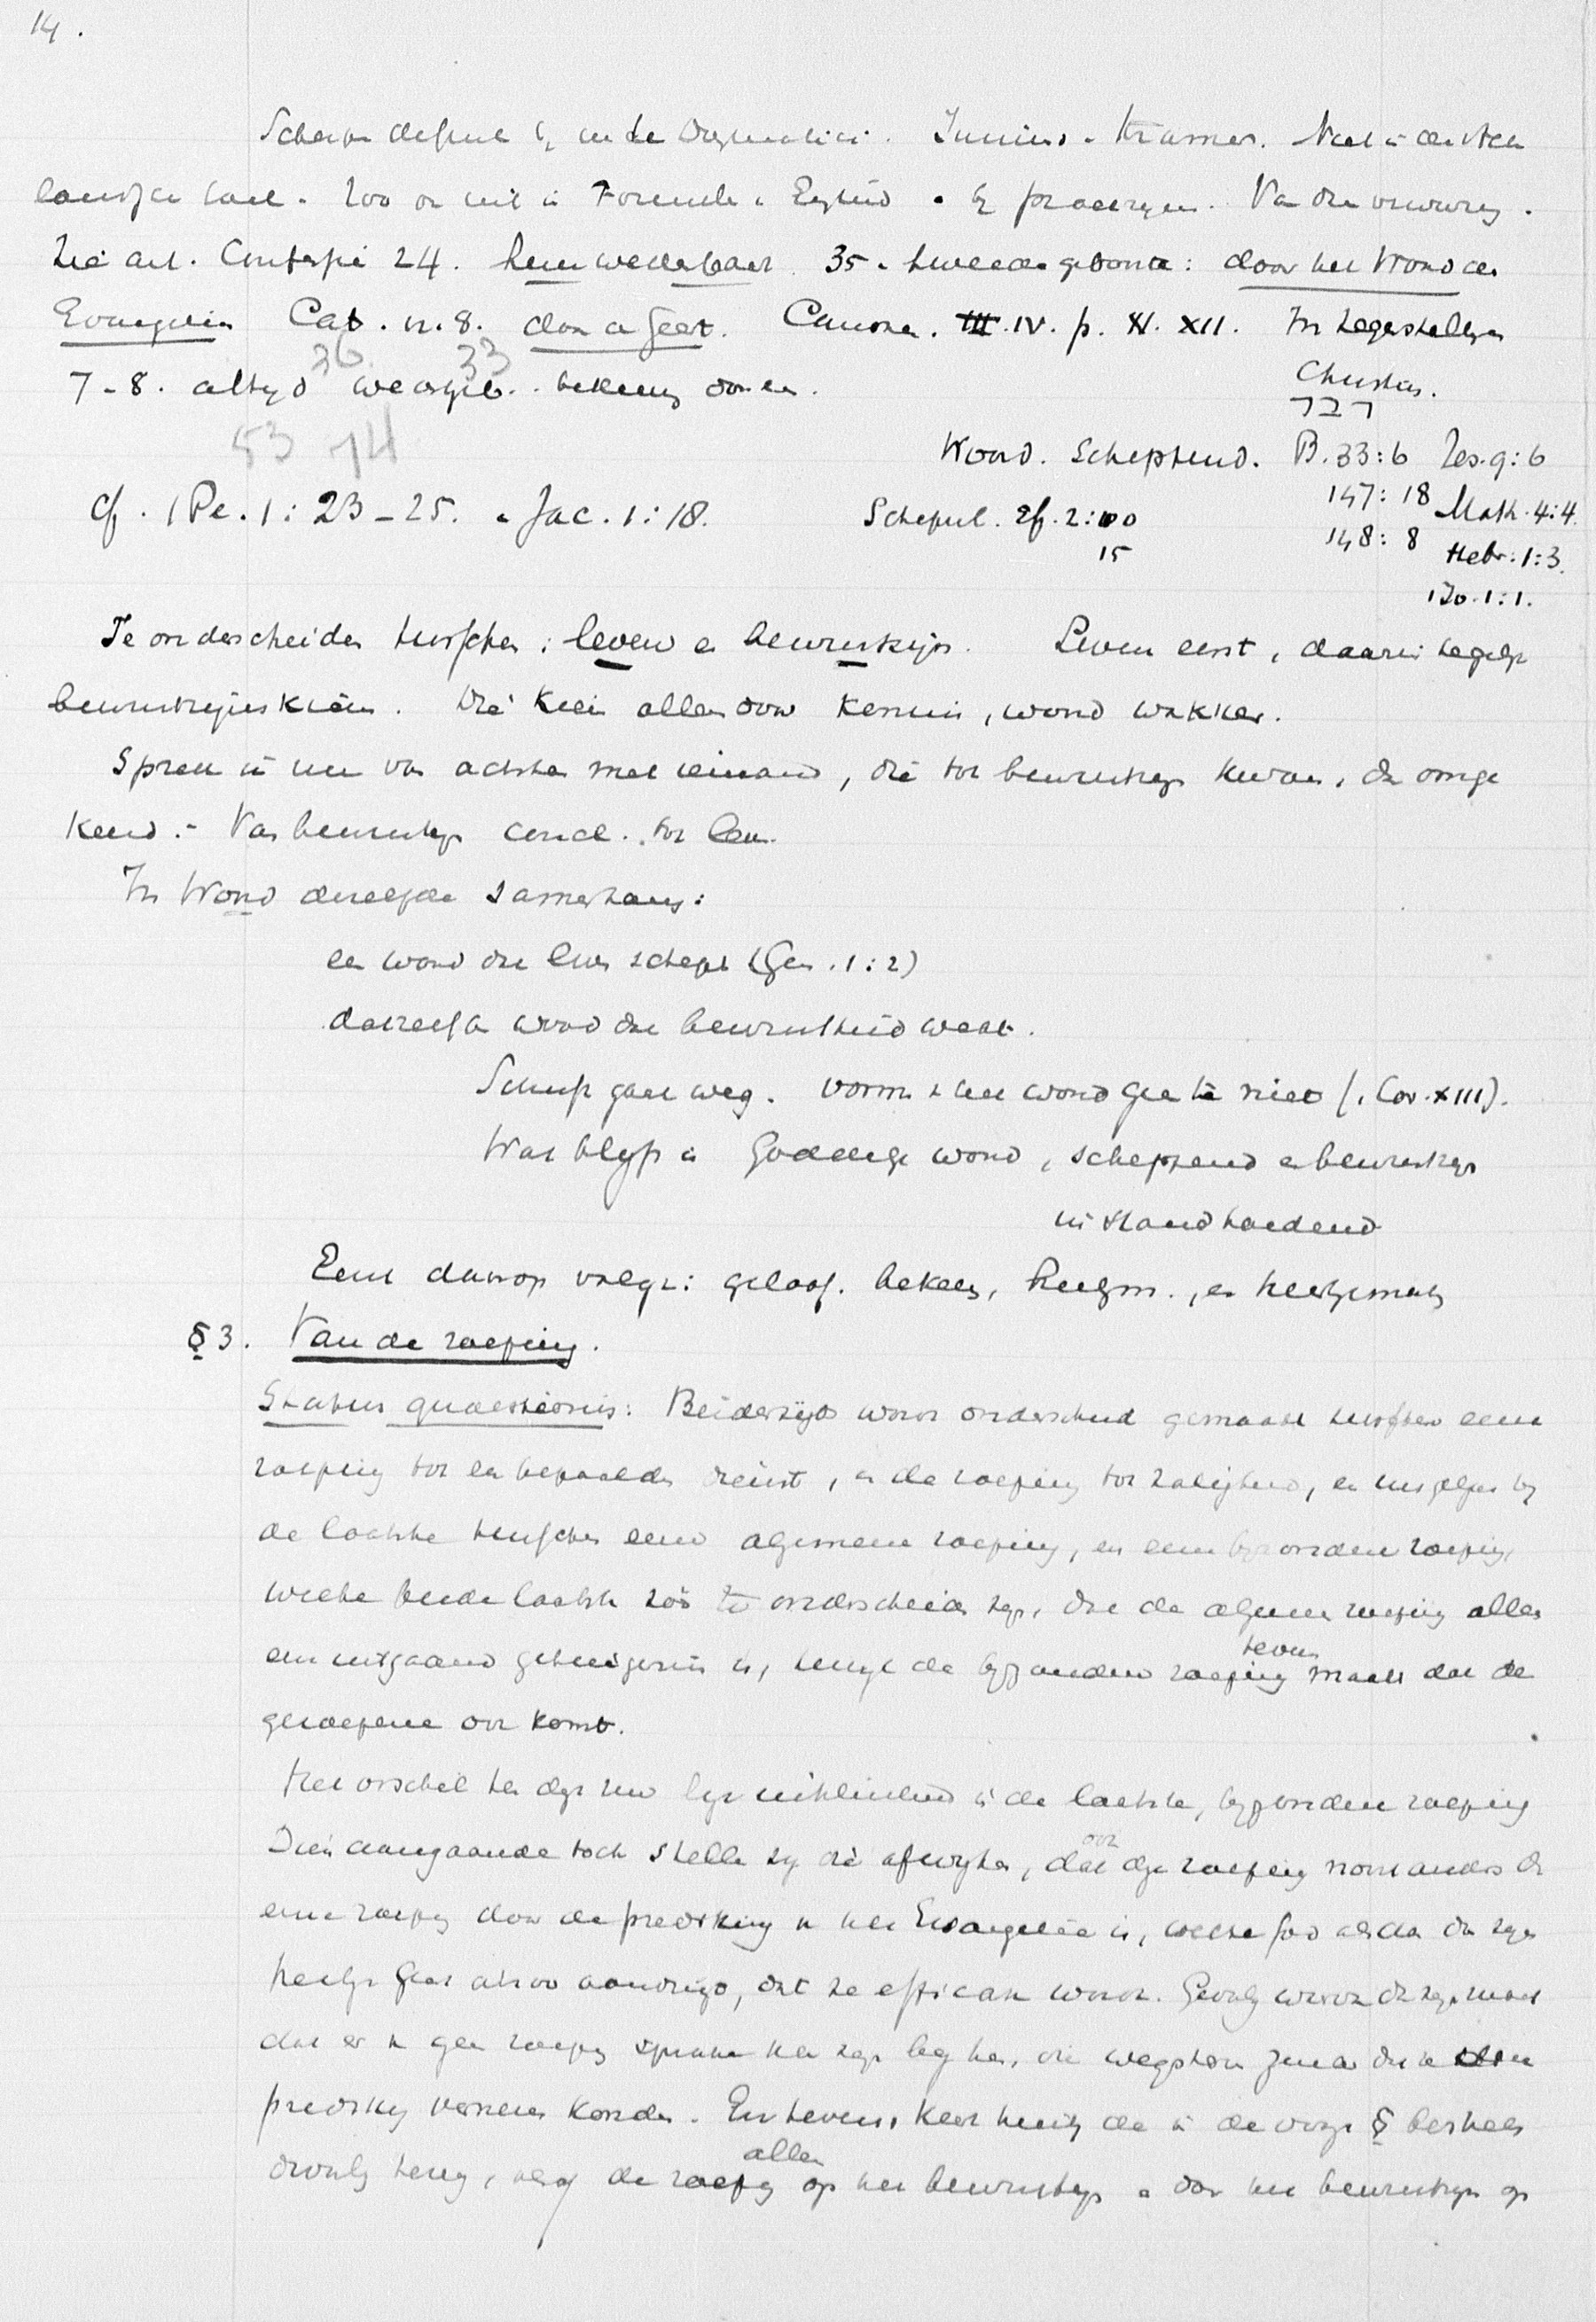 14.
Scherpe definitie bij de Dogmatici. Junius. Niet in de
landsche taal. Zoo en niet in Formulier
Zie art. Confessie 24. hem wederbaart. 35. tweede geboorte: door het Woord des
Evangelies Cat. v. 8. door den Geest. Canones. III. IV. p. XI. XII. In tegenstelling
36 33
7-8. altijd wedergeb. bekeering door en. Christus.
727
53 74
Woord. Scheppend. Ps. 33:6 Jes. 9:6
Cf. 1 Pe. 1:23-25. Jac. 1:18. Schepsel. Ef. 2:10 147:18 Math. 4:4.
15 148:8 Hebr. 1:3.
1 Jo. 1:1.
Te onderscheiden tusschen: leven en bewustzijn. Leven eerst, daarin tegelijk
bewustzijnskiem. Die kiem alleen door kennis, wordt wakker.
Spreek ik nu van achter met iemand, die tot bewustzijn kwam, dan omge
keerd. - Van bewustzijn concl. tot leven.
In Woord dezelfde samenhang:
een woord dat leven schept (Gen. 1:2)
datzelfde woord dat bewustheid wekt.
Schrift gaat weg. vorm v. het woord gaat te niet (1 Cor. XIII).
Wat blijft is Goddelijk woord, scheppend en bewustzijn
in stand houdend
Eerst daarop volgt: geloof. bekeer., Rechtvm., en heiligmak.
§ 3. Van de roeping.
Status quaestionis: Beiderzijds wordt onderscheid gemaakt tusschen eene
roeping tot een bepaalden dienst, en de roeping tot zaligheid, en insgelijks bij
de laatste tusschen eene algemeene roeping, en eene bijzondere roeping,
welke beide laatste zóó te onderscheiden zijn, dat de algemeene roeping alleen
een uitgaand getuigenis is, terwijl de bijzondere roeping tevens maakt dat de
geroepene ook komt.
Het verschil ten deze nu ligt uitsluitend in de laatste, bijzondere roeping
Dien aangaande toch stellen zij die afwijken, dat ook deze roeping nooit anders dan
eene roeping door de prediking v. het Evangelie is, welke God alsdan door zijn
Heiligen Geest alzoo aandringt, dat ze efficax wordt. Gevolg waarvan dan zijn moet
dat er v. geen roeping sprake kan zijn bij hen, die wegsterven zonder dat ze deze
prediking vernemen konden. En tevens, keert hierbij de in de vorige § bestreden
dwaling terug, alsof de roeping alleen op het bewustzijn en door het bewustzijn op